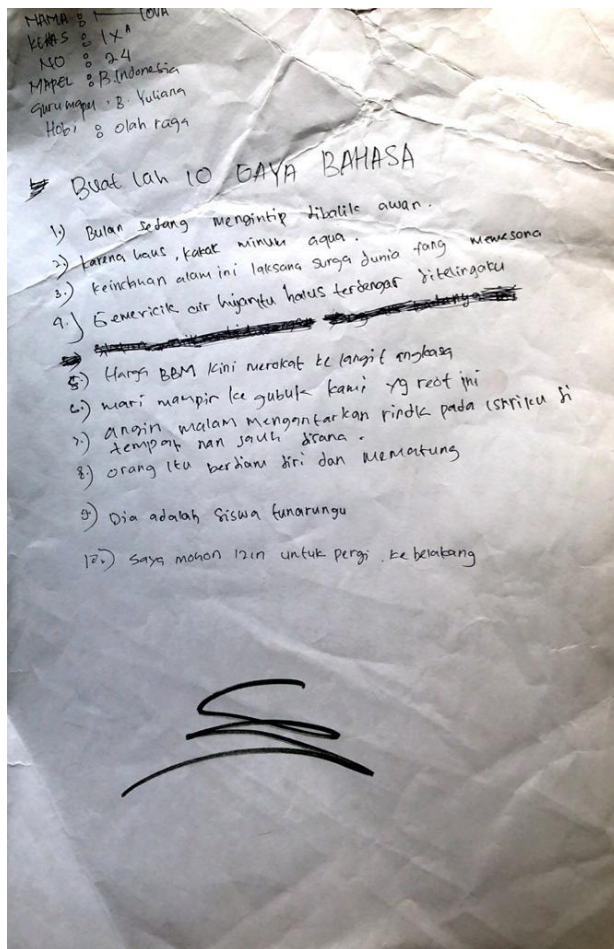 NAMA :
KELAS : IX A
NO : 24
MAPEL : B.Indonesia
Guru mapel : B. Yuliana
Hobi : olah raga
Buat lah 10 GAYA BAHASA
1.) Bulan sedang mengintip dibalik awan.
2) karena haus, kakak minum aqua.
3.) keindahan alam ini laksana surga dunia yang mewesona
4.) Gemericik air hujan itu halus terdengar ditelingaku
5.) Harga BBM kini merokat ke langit angkasa
6.) mari mampir ke gubuk kami yg reot ini
7.) angin malam mengantarkan rindk pada istriku di
tempat nan jauh disana.
8.) orang itu berdiam diri dan mematung
9.) Dia adalah siswa tunarungu
10.) Saya mohon izin untuk pergi. ke belakang